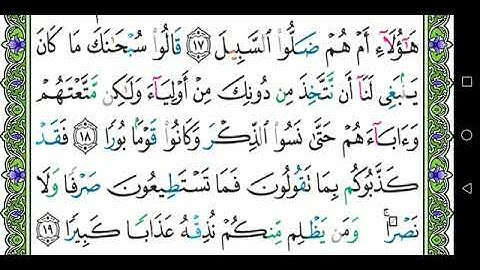 هَـٰٓؤُلَآءِ أَمْ هُمْ ضَلُّوا۟ ٱلسَّبِيلَ ١٧ قَالُوا۟ سُبْحَـٰنَكَ مَا كَانَ
يَنۢبَغِى لَنَآ أَن نَّتَّخِذَ مِن دُونِكَ مِنْ أَوْلِيَآءَ وَلَـٰكِن مَّتَّعْتَهُمْ
وَءَابَآءَهُمْ حَتَّىٰ نَسُوا۟ ٱلذِّكْرَ وَكَانُوا۟ قَوْمًۢا بُورًا ١٨ فَقَدْ
كَذَّبُوكُم بِمَا تَقُولُونَ فَمَا تَسْتَطِيعُونَ صَرْفًا وَلَا
نَصْرًا ۚ وَمَن يَظْلِم مِّنكُمْ نُذِقْهُ عَذَابًا كَبِيرًا ١٩